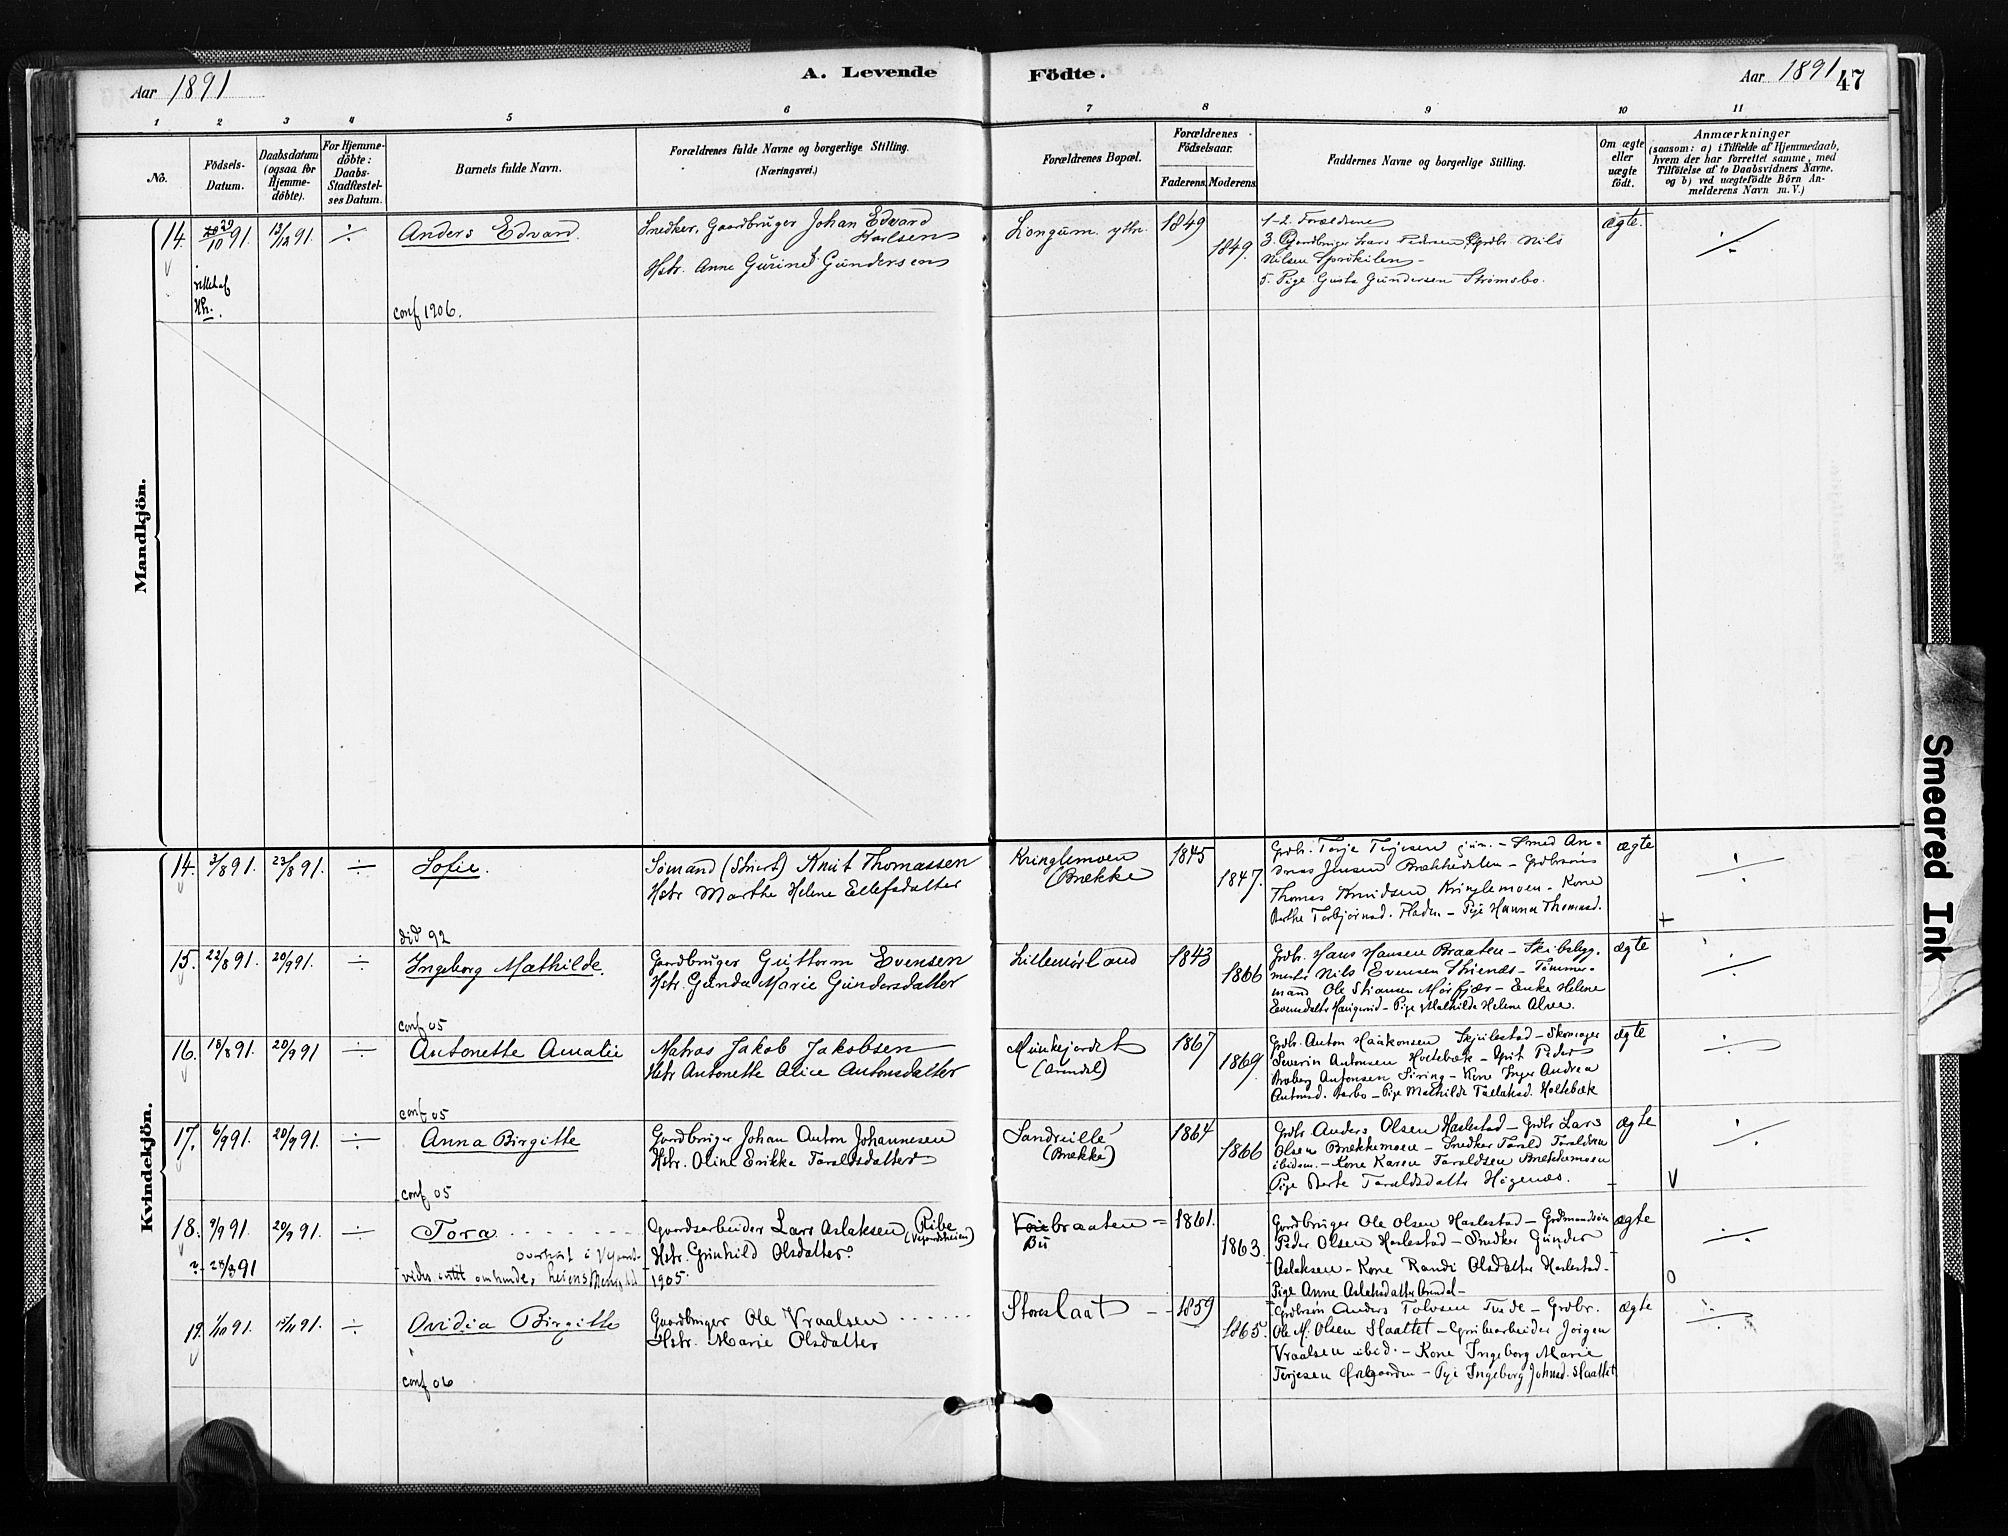 Aar 1891
A. Levende
Födte.
Aar 1891
47
1 2 3 4 5 6 7 8 9 10 11
No.
Födsels-
Datum.
Daabsdatum
(ogsaa for
Hjemme-
döbte).
For Hjemme-
döbte:
Daabs-
Stadfæstel-
ses Datum.
Barnets fulde Navn.
Forældrenes fulde Navne og borgerlige Stilling.
(Næringsvei.)
Forældrenes Bopæl.
Forældrenes
Födselsaar.
Faderens. Moderens.
Faddernes Navne og borgerlige Stilling.
Om ægte
eller
uægte
födt.
Anmærkninger
(saasom: a) i Tilfælde af Hjemmedaab,
hvem der har forrettet samme, med
Tilföielse af to Daabsvidners Navne.
og b) ved uægtefödte Börn An-
melderens Navn m. V.)
Mandkjön.
14. 29/10 91. 13/12 91. ÷
rettet af
Anders Edvard.
conf 1906.
Snedker, Gaardbruger Johan Edvard
Karlsen
Hstr. Anne Gurine Gundersen
Longum ytre.
1849
1849.
1-2. Forældrene
3. Gaardbruger Lars Pedersen Grdbr. Nils
Nilsen Sprökilen -
5. Pige Gusta Gundersen Strömsbo.
ægte.
÷
Kvindekjön.
14. 3/8 91. 23/8 91. ÷
Sofie.
död 92
Sömand (Stuert) Knut Thomassen
Hstr Marthe Helene Ellefsdatter
Kringlemoen
(Brække
1845
1847.
Grdbr. Terje Terjesen jun. - Smed An-
dreas Jensen Brækkedalen - Grdbrsön
Thomas Knudsen Kringlemoen - Kone
Berthe Torbjörnsd. Fladen - Pige Hanna Thomasd.
ægte
÷
+
15. 22/8 91. 20/9 91. ÷
Ingeborg Mathilde.
conf 05
Gaardbruger Guttorm Evensen
Hstr. Gunda Marie Gundersdatter
Lillemörland
1843
1866
Grdbr. Hans Hansen Braaten - Skibsbyg-
mester Nils Evensen - Tömmer-
mand Ole Stiansen Mörfjær - Enke Helene
Evensdatter - Pige Mathilde Helene Alve.
ægte
÷
16. 18/8 91. 20/9 91 ÷
Antonette Amalie
conf 05
Matros Jakob Jakobsen
Hstr Antonette Alice Antonsdatter
Munkejordet
(Arendal)
1867
1869
Grdbr. Anton Haakonsen Skjulestad - Skomager
Severin Antonsen Holtebæk - Peder
Antonsen - Kone Inger Andrea
Antonsd. - Pige Mathilde Holtebæk
ægte
÷
17. 6/9 91. 20/9 91. ÷
Anna Birgitte
conf 05
Gaardbruger Johan Anton Johannesen
Hstr. Oline Erikke Taraldsdatter
Sandreille
(Brække)
1864
1866
Grdbr Anders Olsen Haslestad - Grdbr Lars
Olsen Brækkemoen - Snedker Tarald Taraldsen
ibidem. - Kone Karen Taraldsen Brækkemoen
Pige Berte Taraldsdatter Högenæs.
ægte
÷
V
18. 9/9 91. 20/9 91. ÷
? 28/8 91
Tora
Gaardsarbeider Lars Aslaksen (Ribe
(Vegardsheien)
Hstr. Gunhild Olsdatter.
1905.
braaten
Bu
1861.
1863.
Gaardbruger Ole Olsen Haslestad - Grdmandsön
Peder Olsen Haslestad - Snedker Gunder
Aslaksen - Kone Randi Olsdatter Haslestad -
Pige Anne Aslaksdatter Arendal -
ægte
÷
O
19. 1/10 91. 15/11 91. ÷
Ovidia Birgitte
conf 06
Gaardbruger Ole Vraalsen
Hstr. Marie Olsdatter
Storeslaat
1859
1865.
Grdbrsön Anders Tolvsen Tvede - Grdbr.
Ole M. Olsen Slaattet - Grubearbeider Jörgen
Vraalsen ibid. - Kone Ingeborg Marie
Terjesen - Pige Ingeborg Johnsd. Slaattet
ægte
÷
Smeared Ink